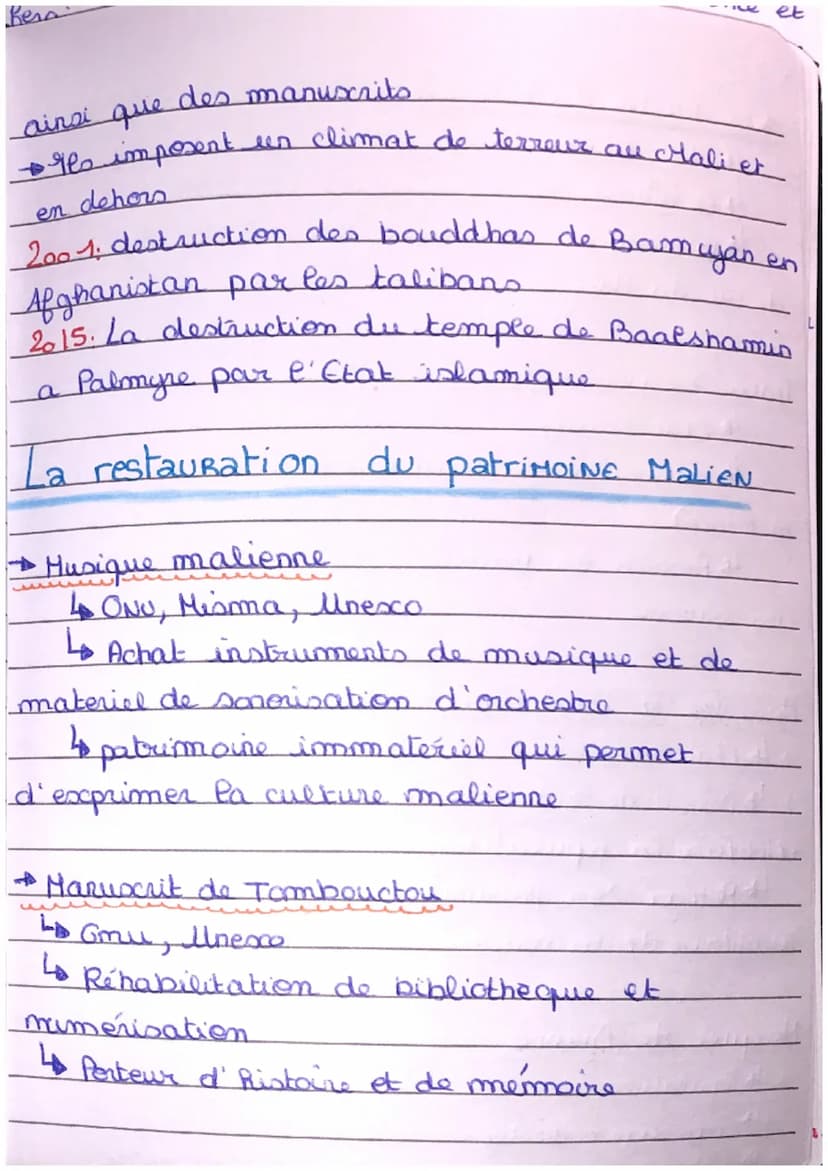 et
ainsi que des manuscrits
→ Ils imposent un climat de terreur au Mali et
en dehors
2001: destruction des bouddhas de Bamuyàn en
Afghanistan par les talibans
2015. La destruction du temple de Baalshamin
a Palmyre par l'Etat islamique
La restauration du patrimoine Malien
→ Musique malienne
↳ ONU, Misma, Unesco
↳ Achat instruments de musique et de
materiel de sonorisation d'orchestre
↳ patrimoine immatériel qui permet
d'exprimer la culture malienne
→ Manuscrit de Tombouctou
↳ Onu, Unesco
↳ Réhabilitation de bibliotheque et
numérisation
↳ Porteur d'histoire et de mémoire